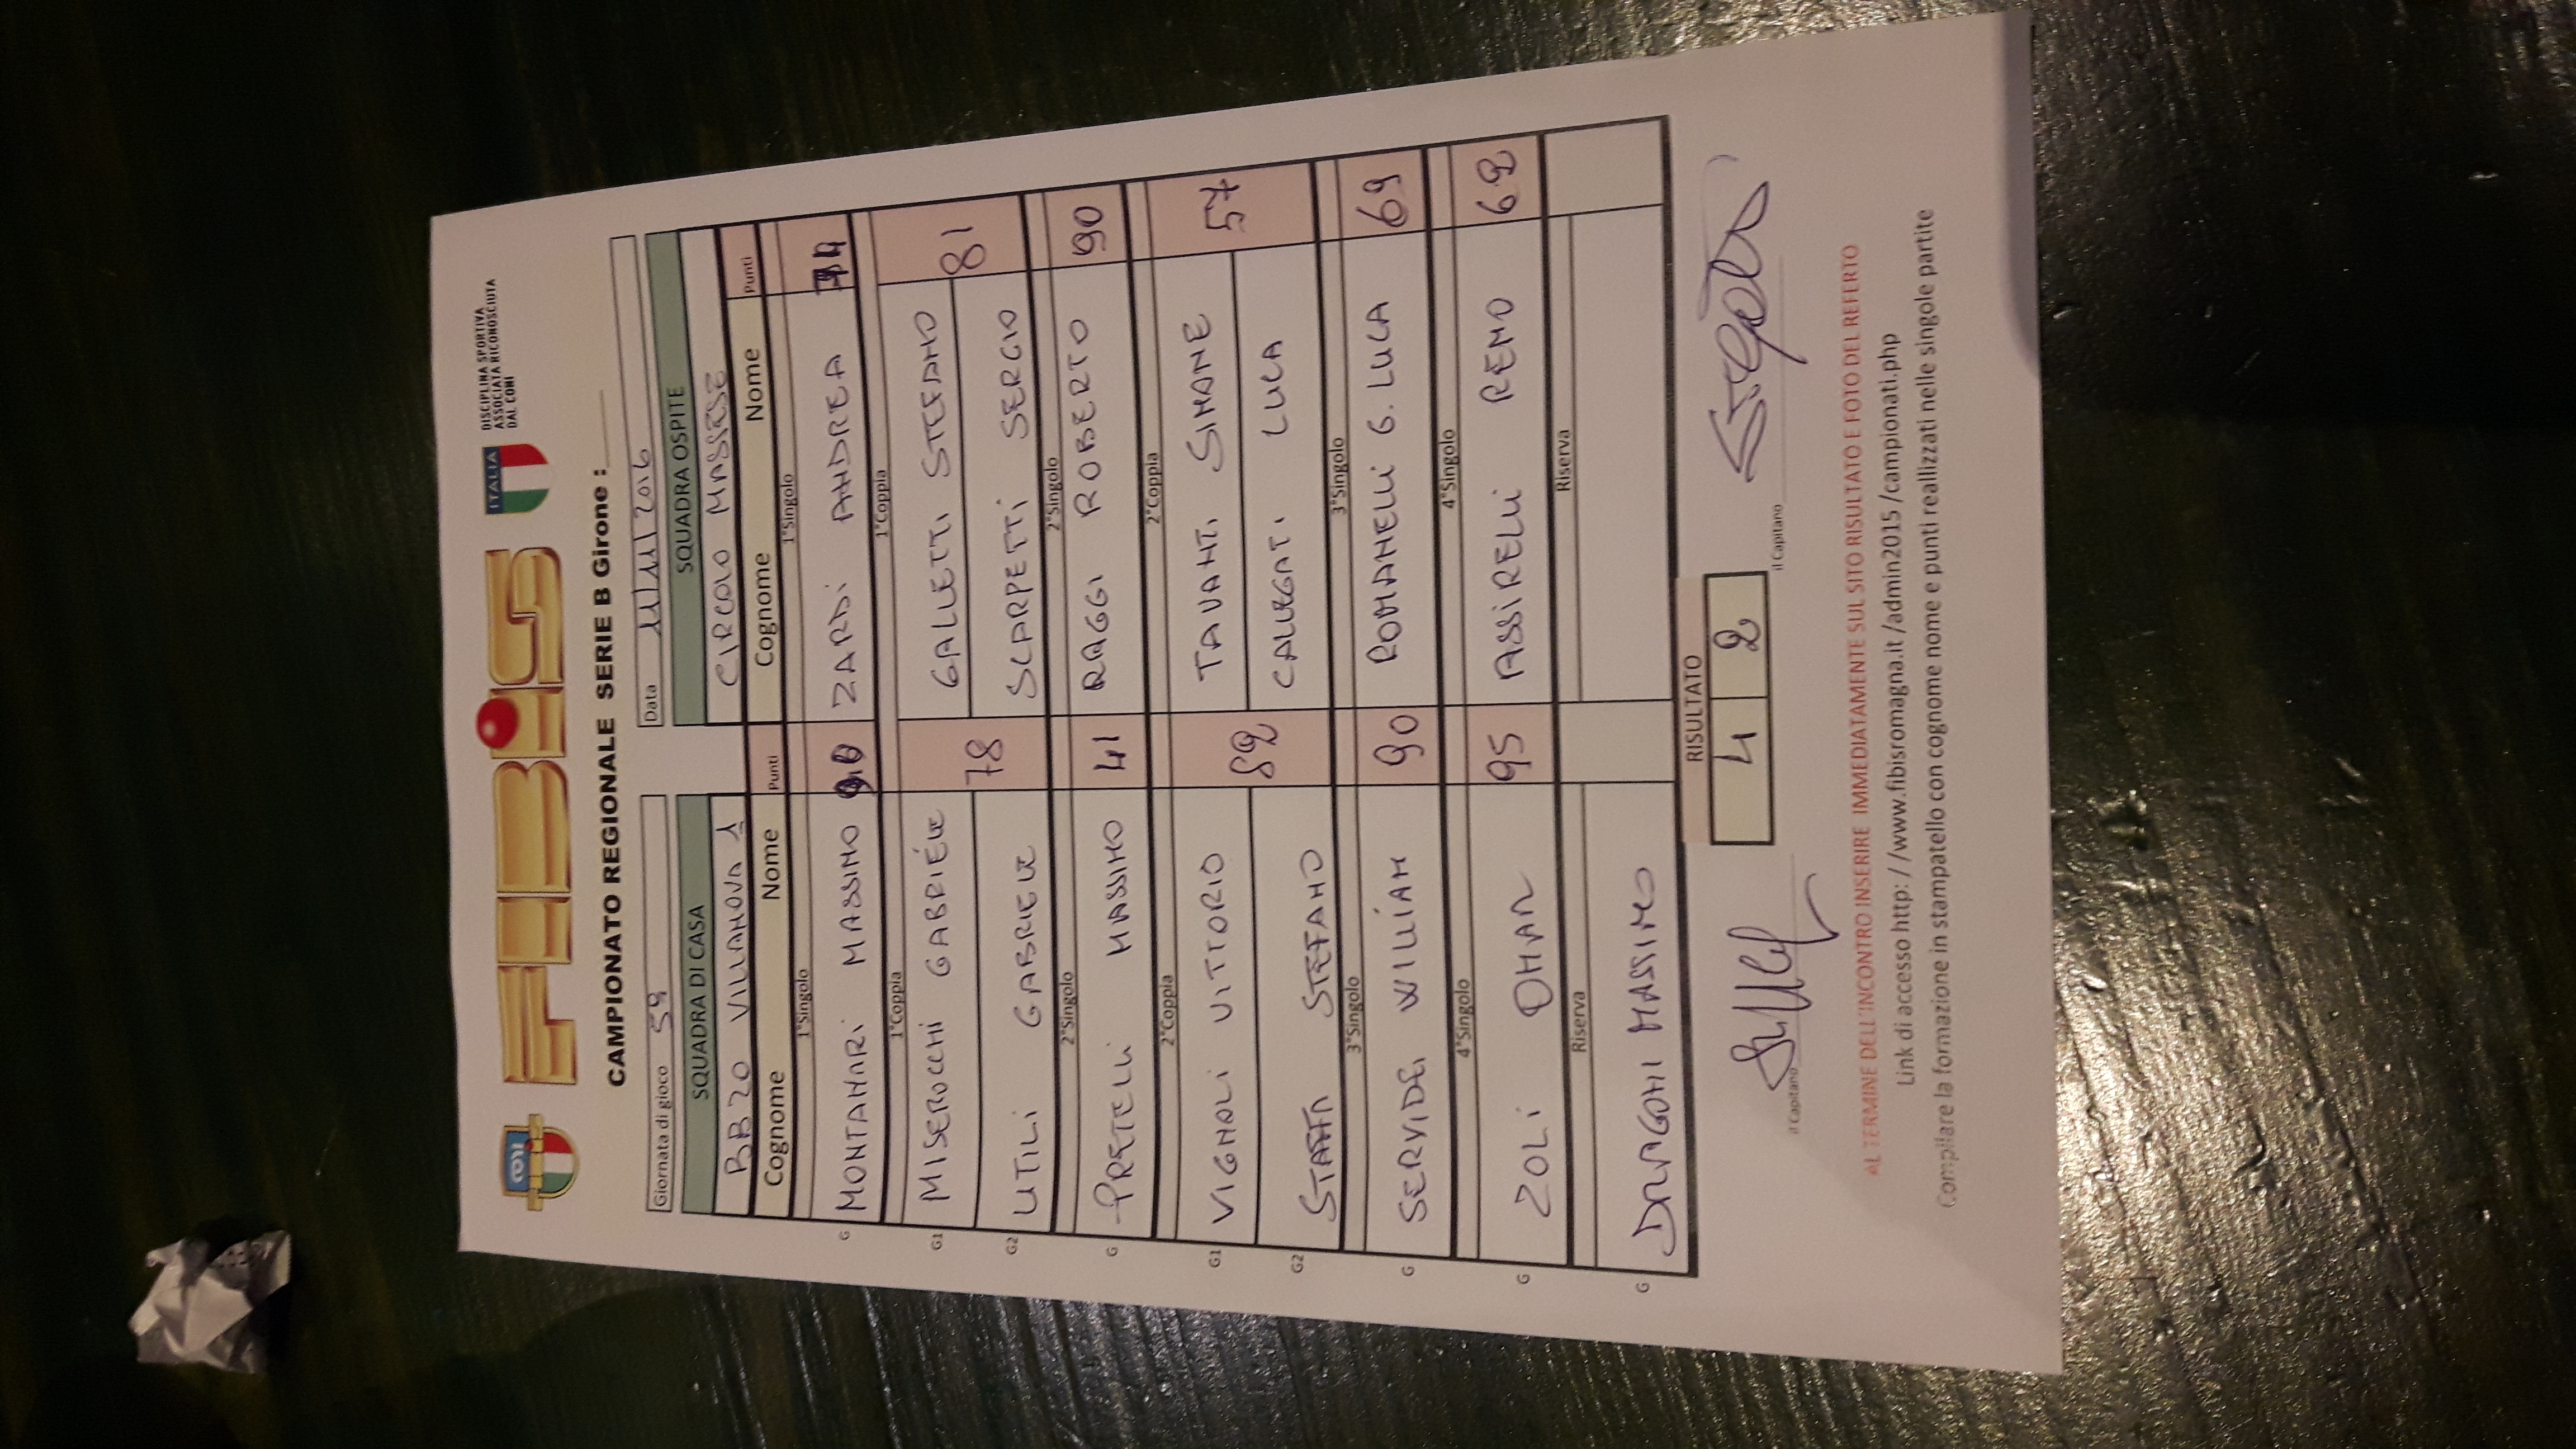 CONI
FIBiS
ITALIA
DISCIPLINA SPORTIVA
ASSOCIATA RICONOSCIUTA
DAL CONI
CAMPIONATO REGIONALE SERIE B Girone :
Giornata di gioco 5ª
Data 11/11/2016
SQUADRA DI CASA SQUADRA OSPITE
BB 20 VILLANOVA 1 CIRCOLO MASSESE
Cognome Nome Punti Cognome Nome Punti
1°Singolo 1°Singolo
G MONTANARI MASSIMO ZARDI ANDREA
1°Coppia 1°Coppia
G1 MISEROCCHI GABRIELE 78 GALLETTI STEFANO 81
G2 UTILI GABRIELE SCARPETTI SERGIO
2°Singolo 2°Singolo
G PRETELLI MASSIMO 41 RAGGI ROBERTO 90
2°Coppia 2°Coppia
G1 VIGNOLI VITTORIO 82 TAVANTI SIMONE 57
G2 STEFANO CALLEGATI LUCA
3°Singolo 3°Singolo
G SERVIDEI WILLIAM 90 ROMANELLI G. LUCA 69
4°Singolo 4°Singolo
G ZOLI OMAR 95 ASSIRELLI REMO 62
Riserva Riserva
G DRAGONI MASSIMO
RISULTATO
4 2
il Capitano il Capitano
AL TERMINE DELL'INCONTRO INSERIRE IMMEDIATAMENTE SUL SITO RISULTATO E FOTO DEL REFERTO
Link di accesso http: / /www.fibisromagna.it /admin2015 /campionati.php
Compilare la formazione in stampatello con cognome nome e punti reallizzati nelle singole partite